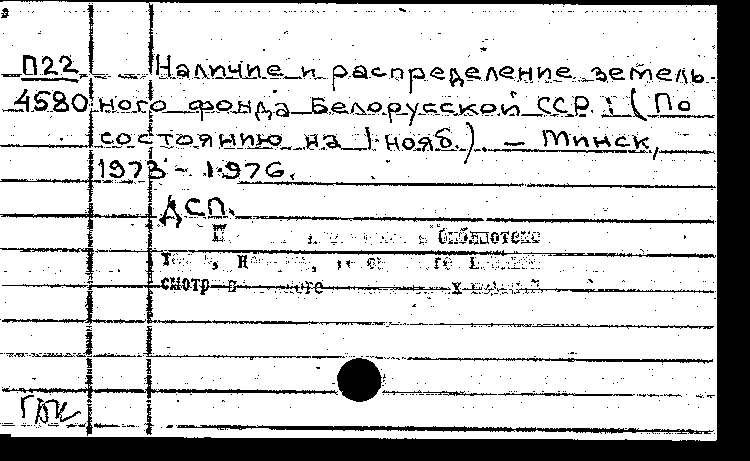 П22 Наличие и распределение земель-
4580 ного фонда Белорусской ССР. (По
состоянию на 1 нояб.). – Минск,
1973 - 1976.
ДСП.
библиотеке
смотр